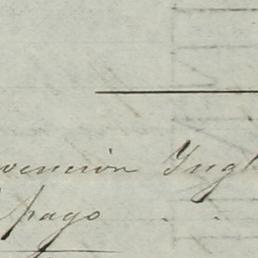 vencion Ingl
pago